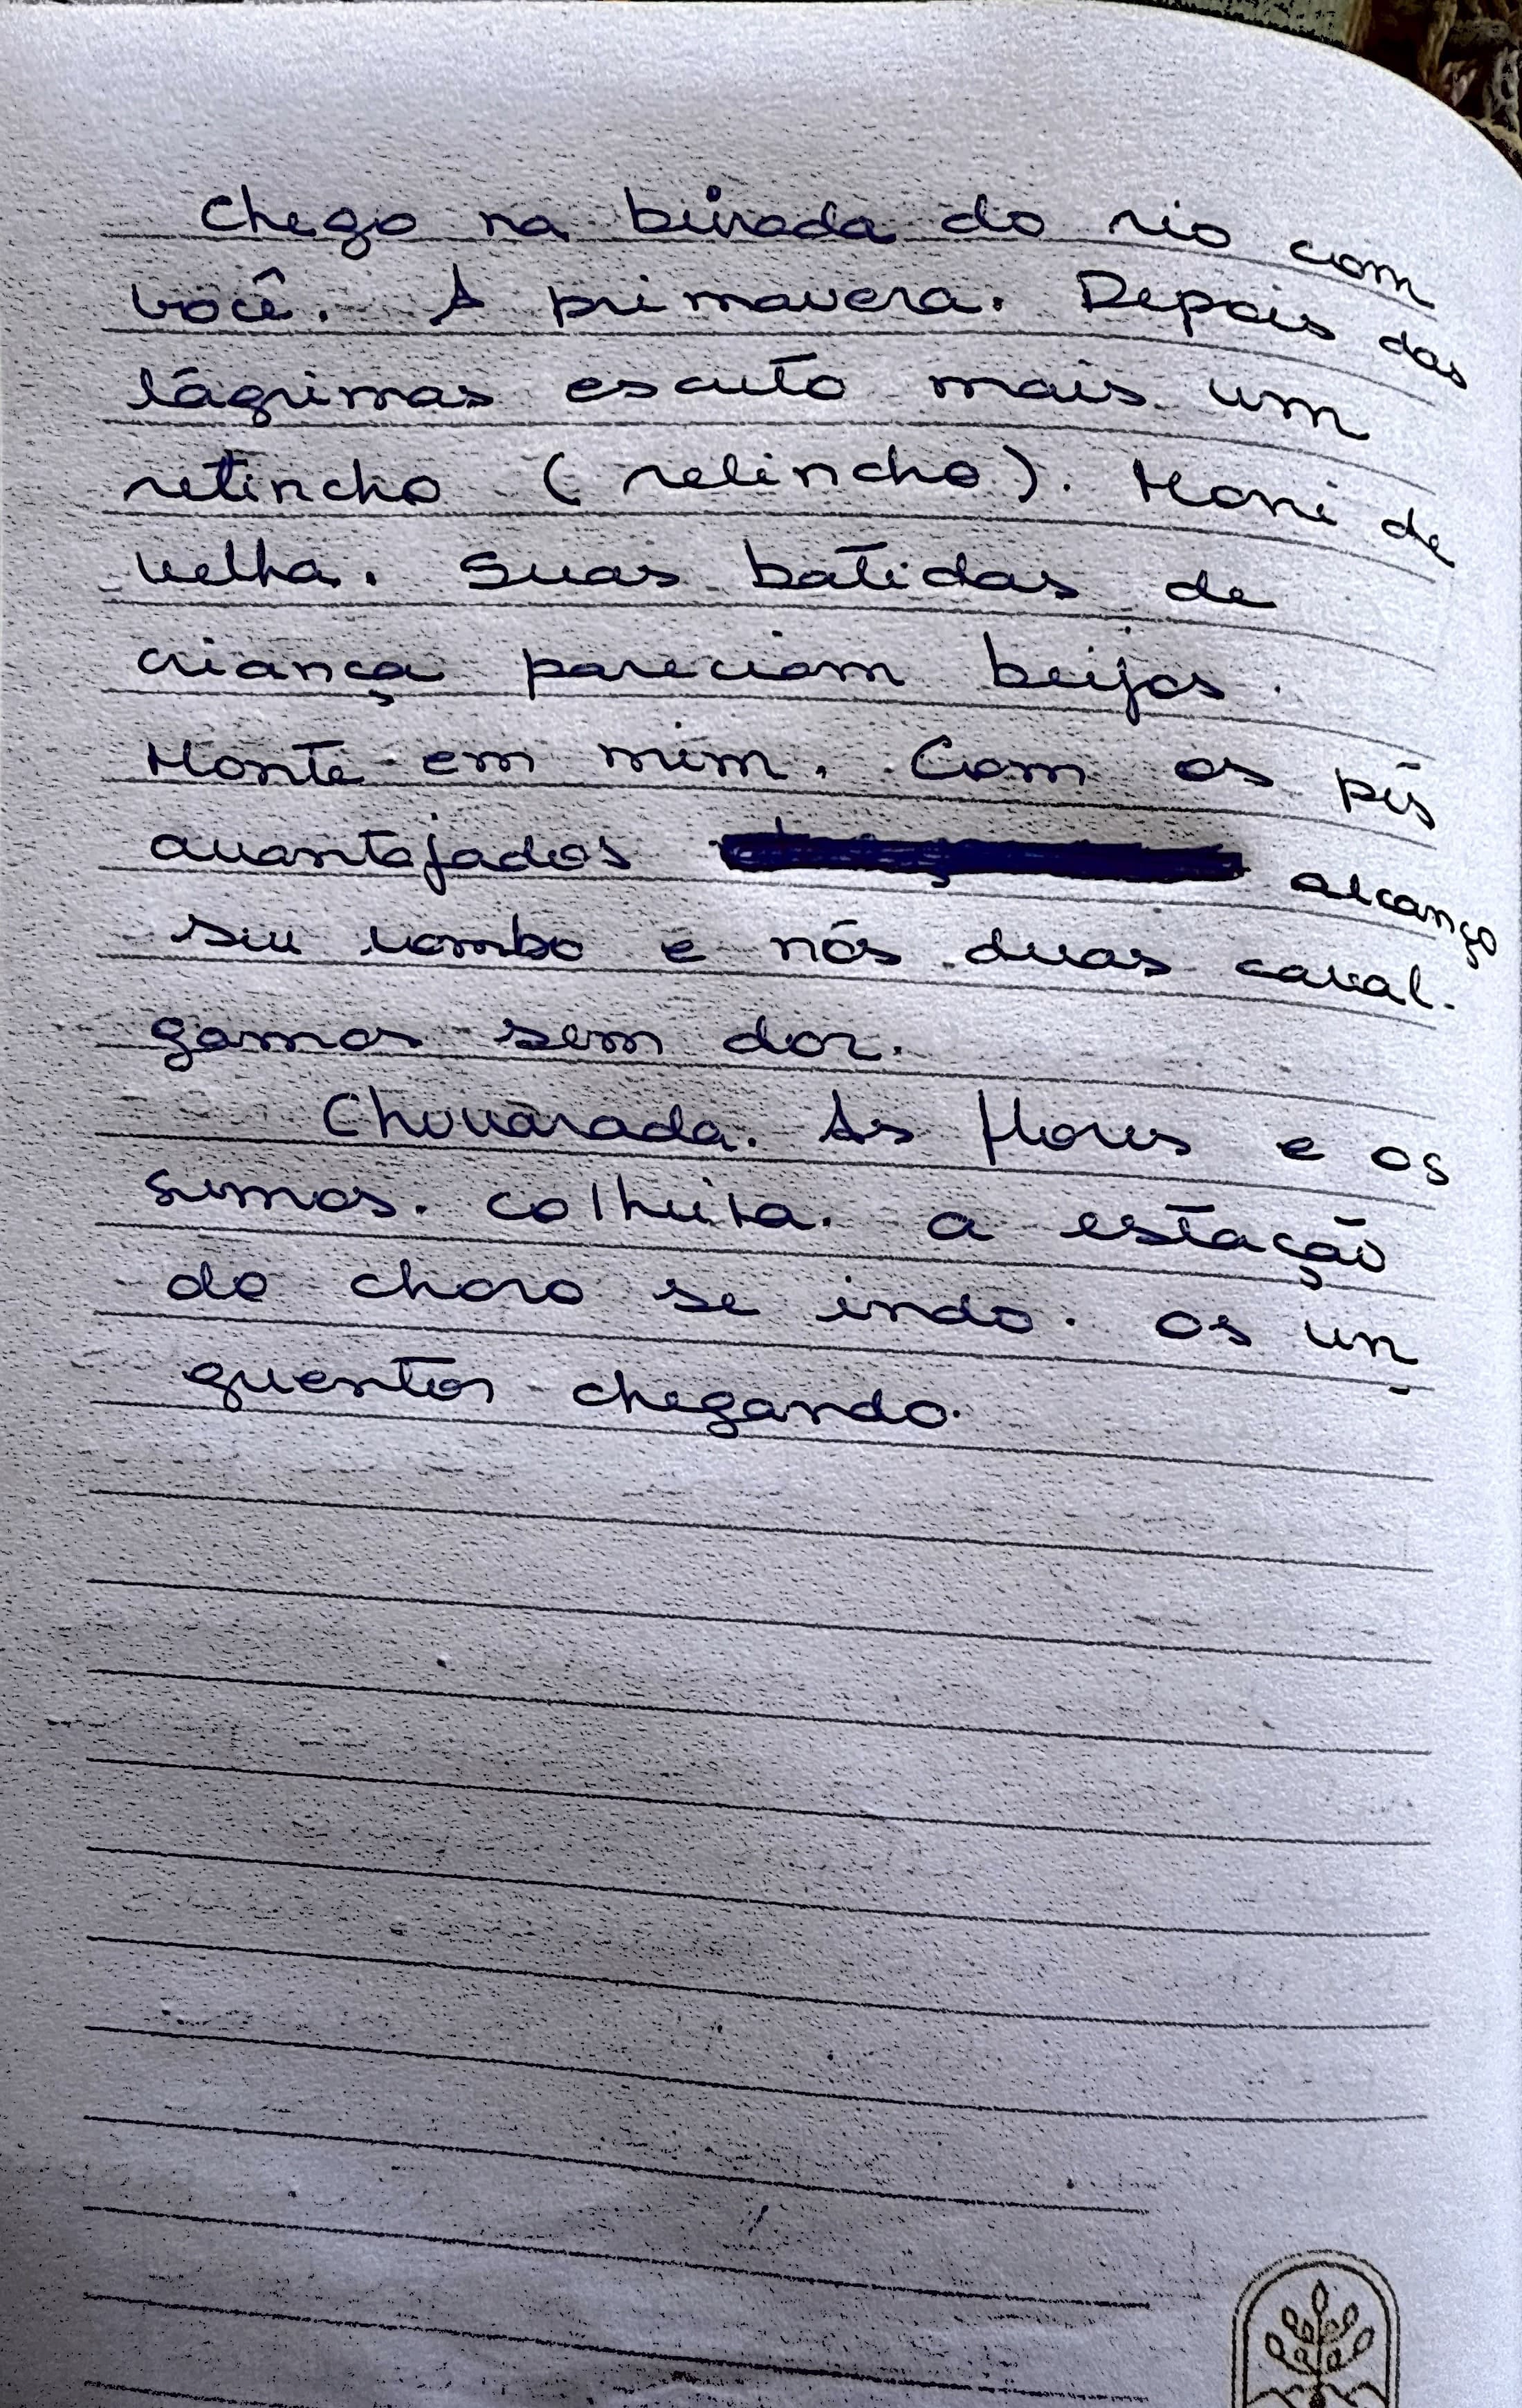 Chego na beirada do rio com
você. A primavera. Depois das
lágrimas escuto mais um
retincho (relincho). Morri de
velha. Suas batidas de
criança pareciam beijos.
Monte em mim. Com os pés
avantajados alcanço
seu lombo e nós duas caval-
gamos sem dor.
Chuvarada. As flores e os
sumos. colheita. a estação
do choro se indo. os un-
guentos chegando.